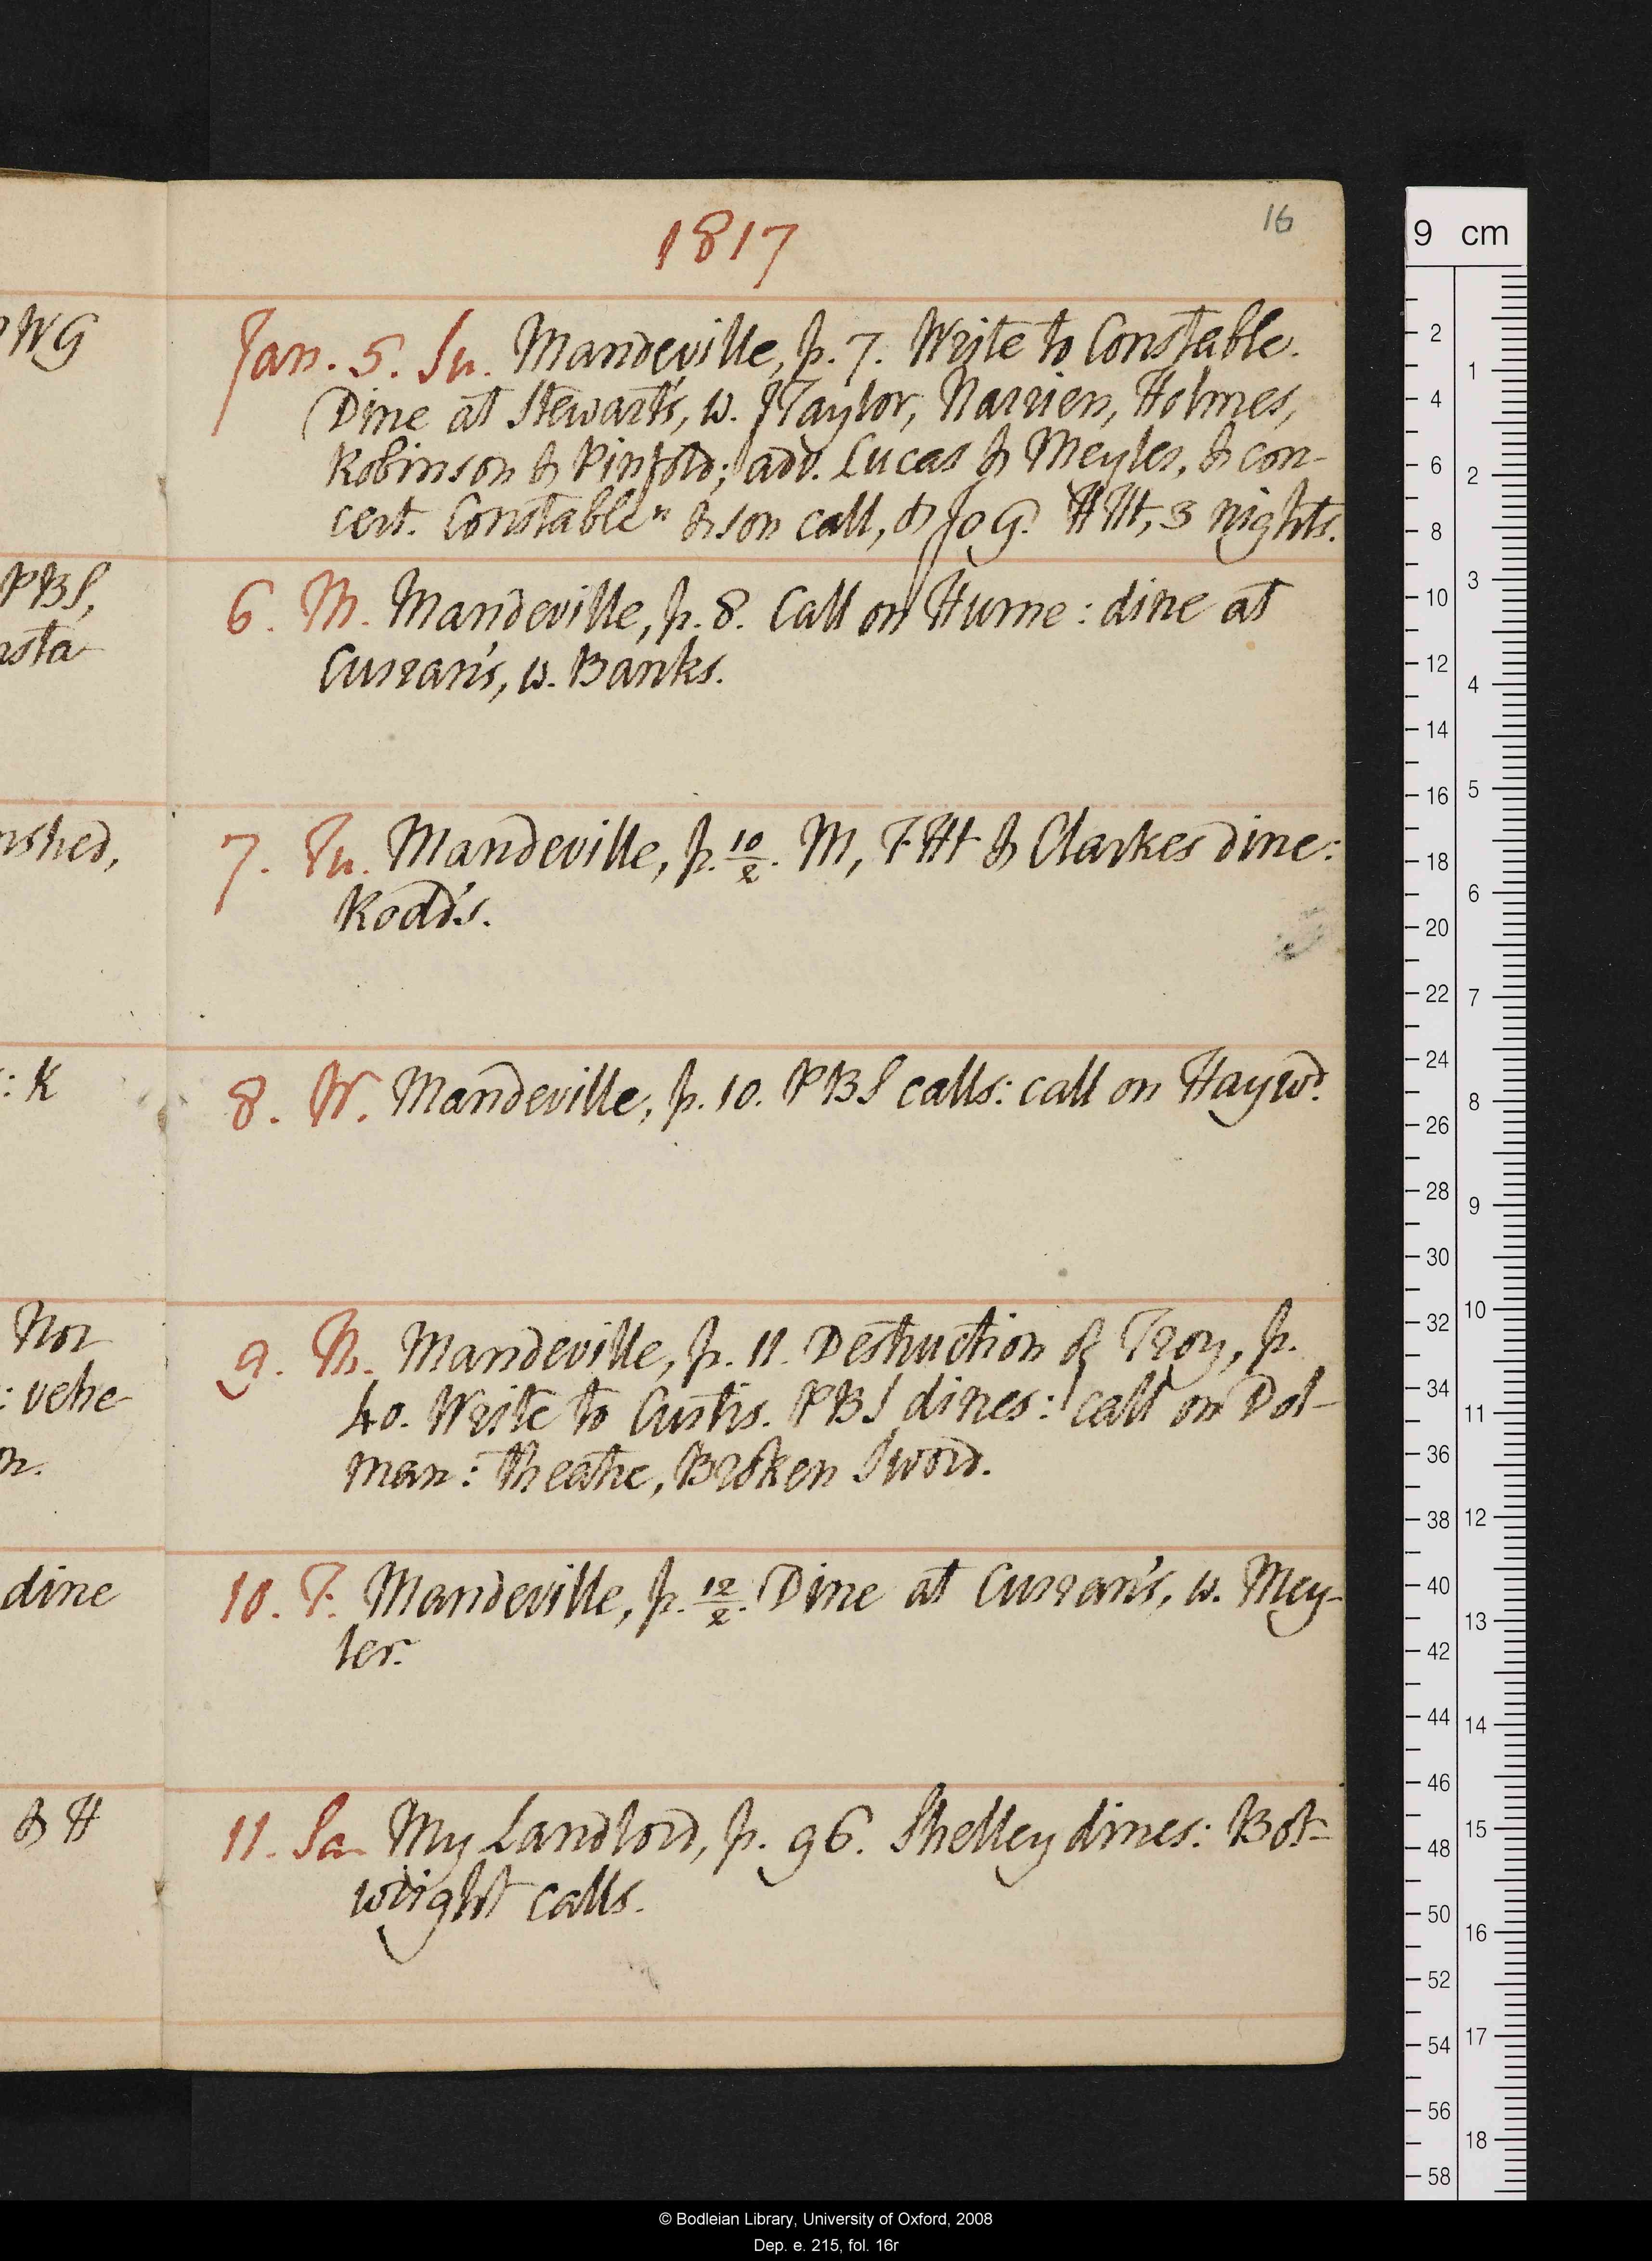 1817
16
Jan. 5. Su. Mandeville, p. 7. Write to Constable.
Dine at Stewart's, w. JTaylor, Narrien, Holmes,
Robinson & Pinfold; adv. Lucas & Meyler, & con-
cert. Constable & son call, & JoG. HHt, 3 nights.
6. M. Mandeville, p. 8. Call on Hume: dine at
Curran's, w. Banks.
7. Tu. Mandeville, p. 10/2. M, FHt & Clarkes dine:
Rodd's.
8. W. Mandeville, p. 10. PBS calls: call on Haywd.
9. Th. Mandeville, p. 11. Destruction of Troy, p.
40. Write to Curtis. PBS dines: call on Dol-
man: theatre, Broken Sword.
10. F. Mandeville, p. 12/2. Dine at Curran's, w. Mey-
ler.
11. Sa. My Landlord, p. 96. Shelley dines: Bot-
wright calls.
WG
PBS,
nsta-
nshed,
: K
Nor
: vehe-
n.
dine
& H
9 cm
2 4 6 8 10 12 14 16 18 20 22 24 26 28 30 32 34 36 38 40 42 44 46 48 50 52 54 56 58
1 2 3 4 5 6 7 8 9 10 11 12 13 14 15 16 17 18
© Bodleian Library, University of Oxford, 2008
Dep. e. 215, fol. 16r